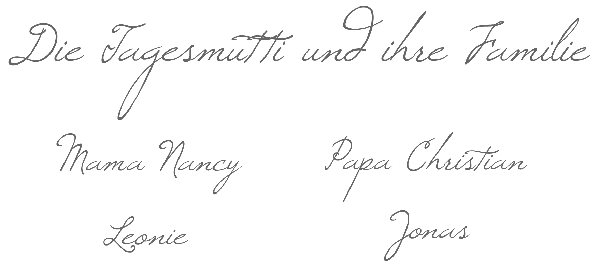 Die Tagesmutti und ihre Familie
Mama Nancy Papa Christian
Leonie Jonas